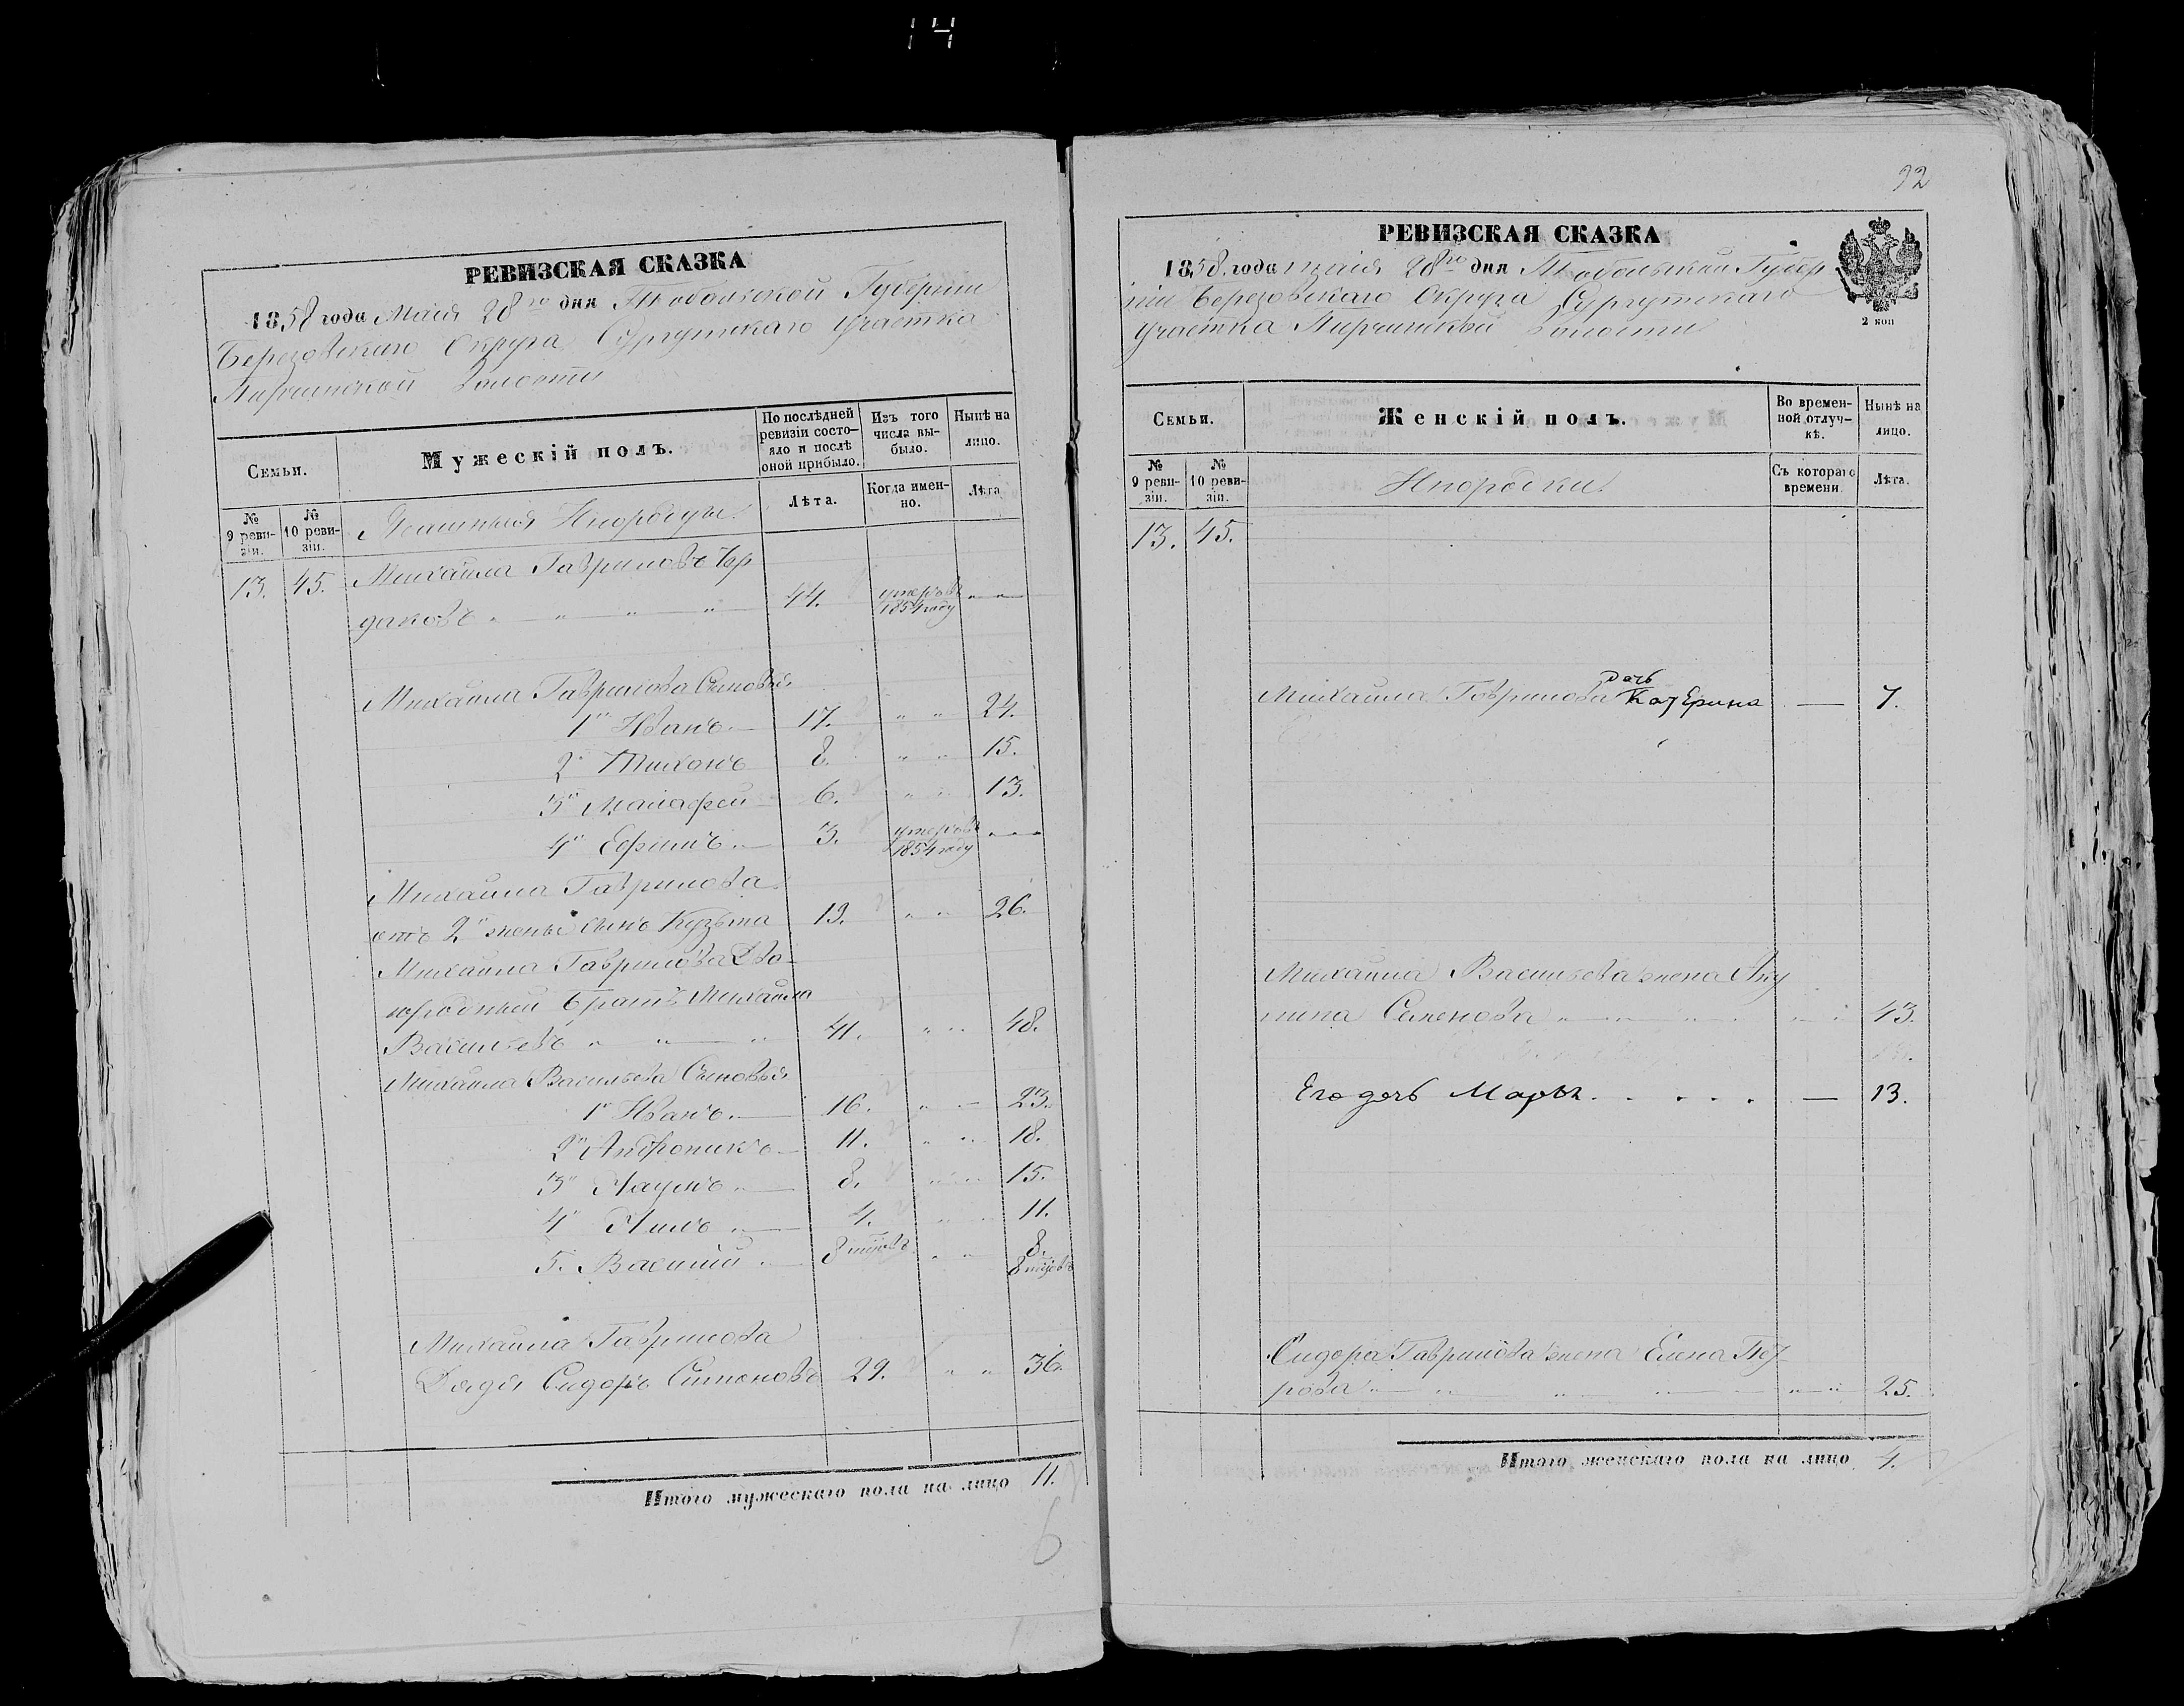 14
РЕВИЗСКАЯ СКАЗКА
1858 года Маія 28го дня Тобольской Губерніи
Березовскаго Округа Сургутскаго участка
Пирчинской Волости
Семьи.
Мужескій полъ.
По послѣдней ревизіи состояло и послѣ оной прибыло.
Изъ того числа выбыло.
Нынѣ на лицо.
№ 9 ревизіи.
№ 10 ревизіи.
Инородцы
Лѣта.
Когда именно.
Лѣта
13. 45. Михайла Гавриловъ
44. умеръ въ 1854 году
Михайла Гаврилова Сыновья
1й Иванъ 17. " " 24.
2й Тихонъ 8. " " 15.
3й Малафей 6. " " 13.
4й Ефимъ 3. умеръ въ 1854 году
Михайла Гаврилова
отъ 2й жены сынъ Кузьма 19. " " 26.
Михайла Гаврилова Дво-
юродный Братъ Михайла
Васильевъ 41. " " 48.
Михайла Васильева Сыновья
1й Иванъ 16. " " 23.
2й Андроникъ 11. " " 18.
3й Наумъ 8. " " 15.
4й Нилъ 4. " " 11.
5. Василій 8 " " 8. 8
Михайла Гаврилова
Дядя Сидоръ Симоновъ 29. " " 36.
Итого мужескаго пола на лицо 11.
6
92
РЕВИЗСКАЯ СКАЗКА
1858 года маія 28го дня Тобольской Губер
ніи Березовскаго Округа Сургутскаго
участка Пирчинской Волости
2 коп
Семьи.
Женскій полъ.
Во временной отлучкѣ.
Нынѣ на лицо.
№ 9 ревизіи.
№ 10 ревизіи.
Инородки.
Съ котораго времени
Лѣта.
13. 45.
дочь
Михайла Гаврилова Катерина — 7.
Михайла Васильева жена Аку
лина Семенова " " 43.
Его дочь Марья . . . . . — 13.
Сидора Гаврилова жена Елена Пет
рова " " 25.
Итого женскаго пола на лицо 4.